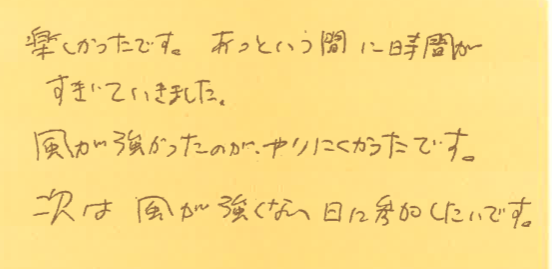 楽しかったです。あっという間に時間が
すぎていきました。
風が強かったのが、やりにくかったです。
次は風が強くない日に参加したいです。